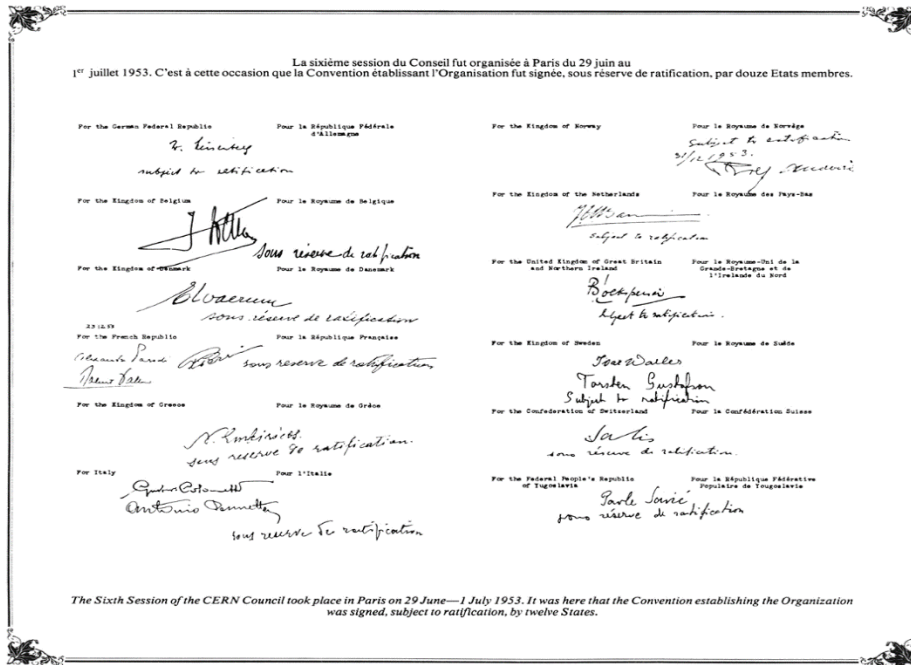 La sixième session du Conseil fut organisée à Paris du 29 juin au
1er juillet 1953. C'est à cette occasion que la Convention établissant l'Organisation fut signée, sous réserve de ratification, par douze Etats membres.
For the German Federal Republic
Pour la République Fédérale
d'Allemagne
subject to ratification
For the Kingdom of Belgium
Pour le Royaume de Belgique
sous réserve de ratification
For the Kingdom of Denmark
Pour le Royaume de Danemark
sous réserve de ratification
23.12.53
For the French Republic
Pour la République Française
Alexandre Parodi
sous reserve de ratification
For the Kingdom of Greece
Pour le Royaume de Grèce
sous reserve de ratification.
For Italy
Pour l'Italie
Gustavo Colonnetti
Antonio Pennetta
sous reserve de ratification
For the Kingdom of Norway
Pour le Royaume de Norvège
Subject to ratification
31/12 1953.
For the Kingdom of the Netherlands
Pour le Royaume des Pays-Bas
Subject to ratification
For the United Kingdom of Great Britain
and Northern Ireland
Pour le Royaume-Uni de la
Grande-Bretagne et de
l'Irelande du Nord
Subject to ratification.
For the Kingdom of Sweden
Pour le Royaume de Suède
Torsten Gustafson
Subject to ratification
For the Confederation of Switzerland
Pour la Confédération Suisse
Salis
sous réserve de ratification.
For the Federal People's Republic
of Yugoslavia
Pour la République Fédérative
Populaire de Yougoslavie
Pavle Savić
sous réserve de ratification
The Sixth Session of the CERN Council took place in Paris on 29 June—1 July 1953. It was here that the Convention establishing the Organization
was signed, subject to ratification, by twelve States.